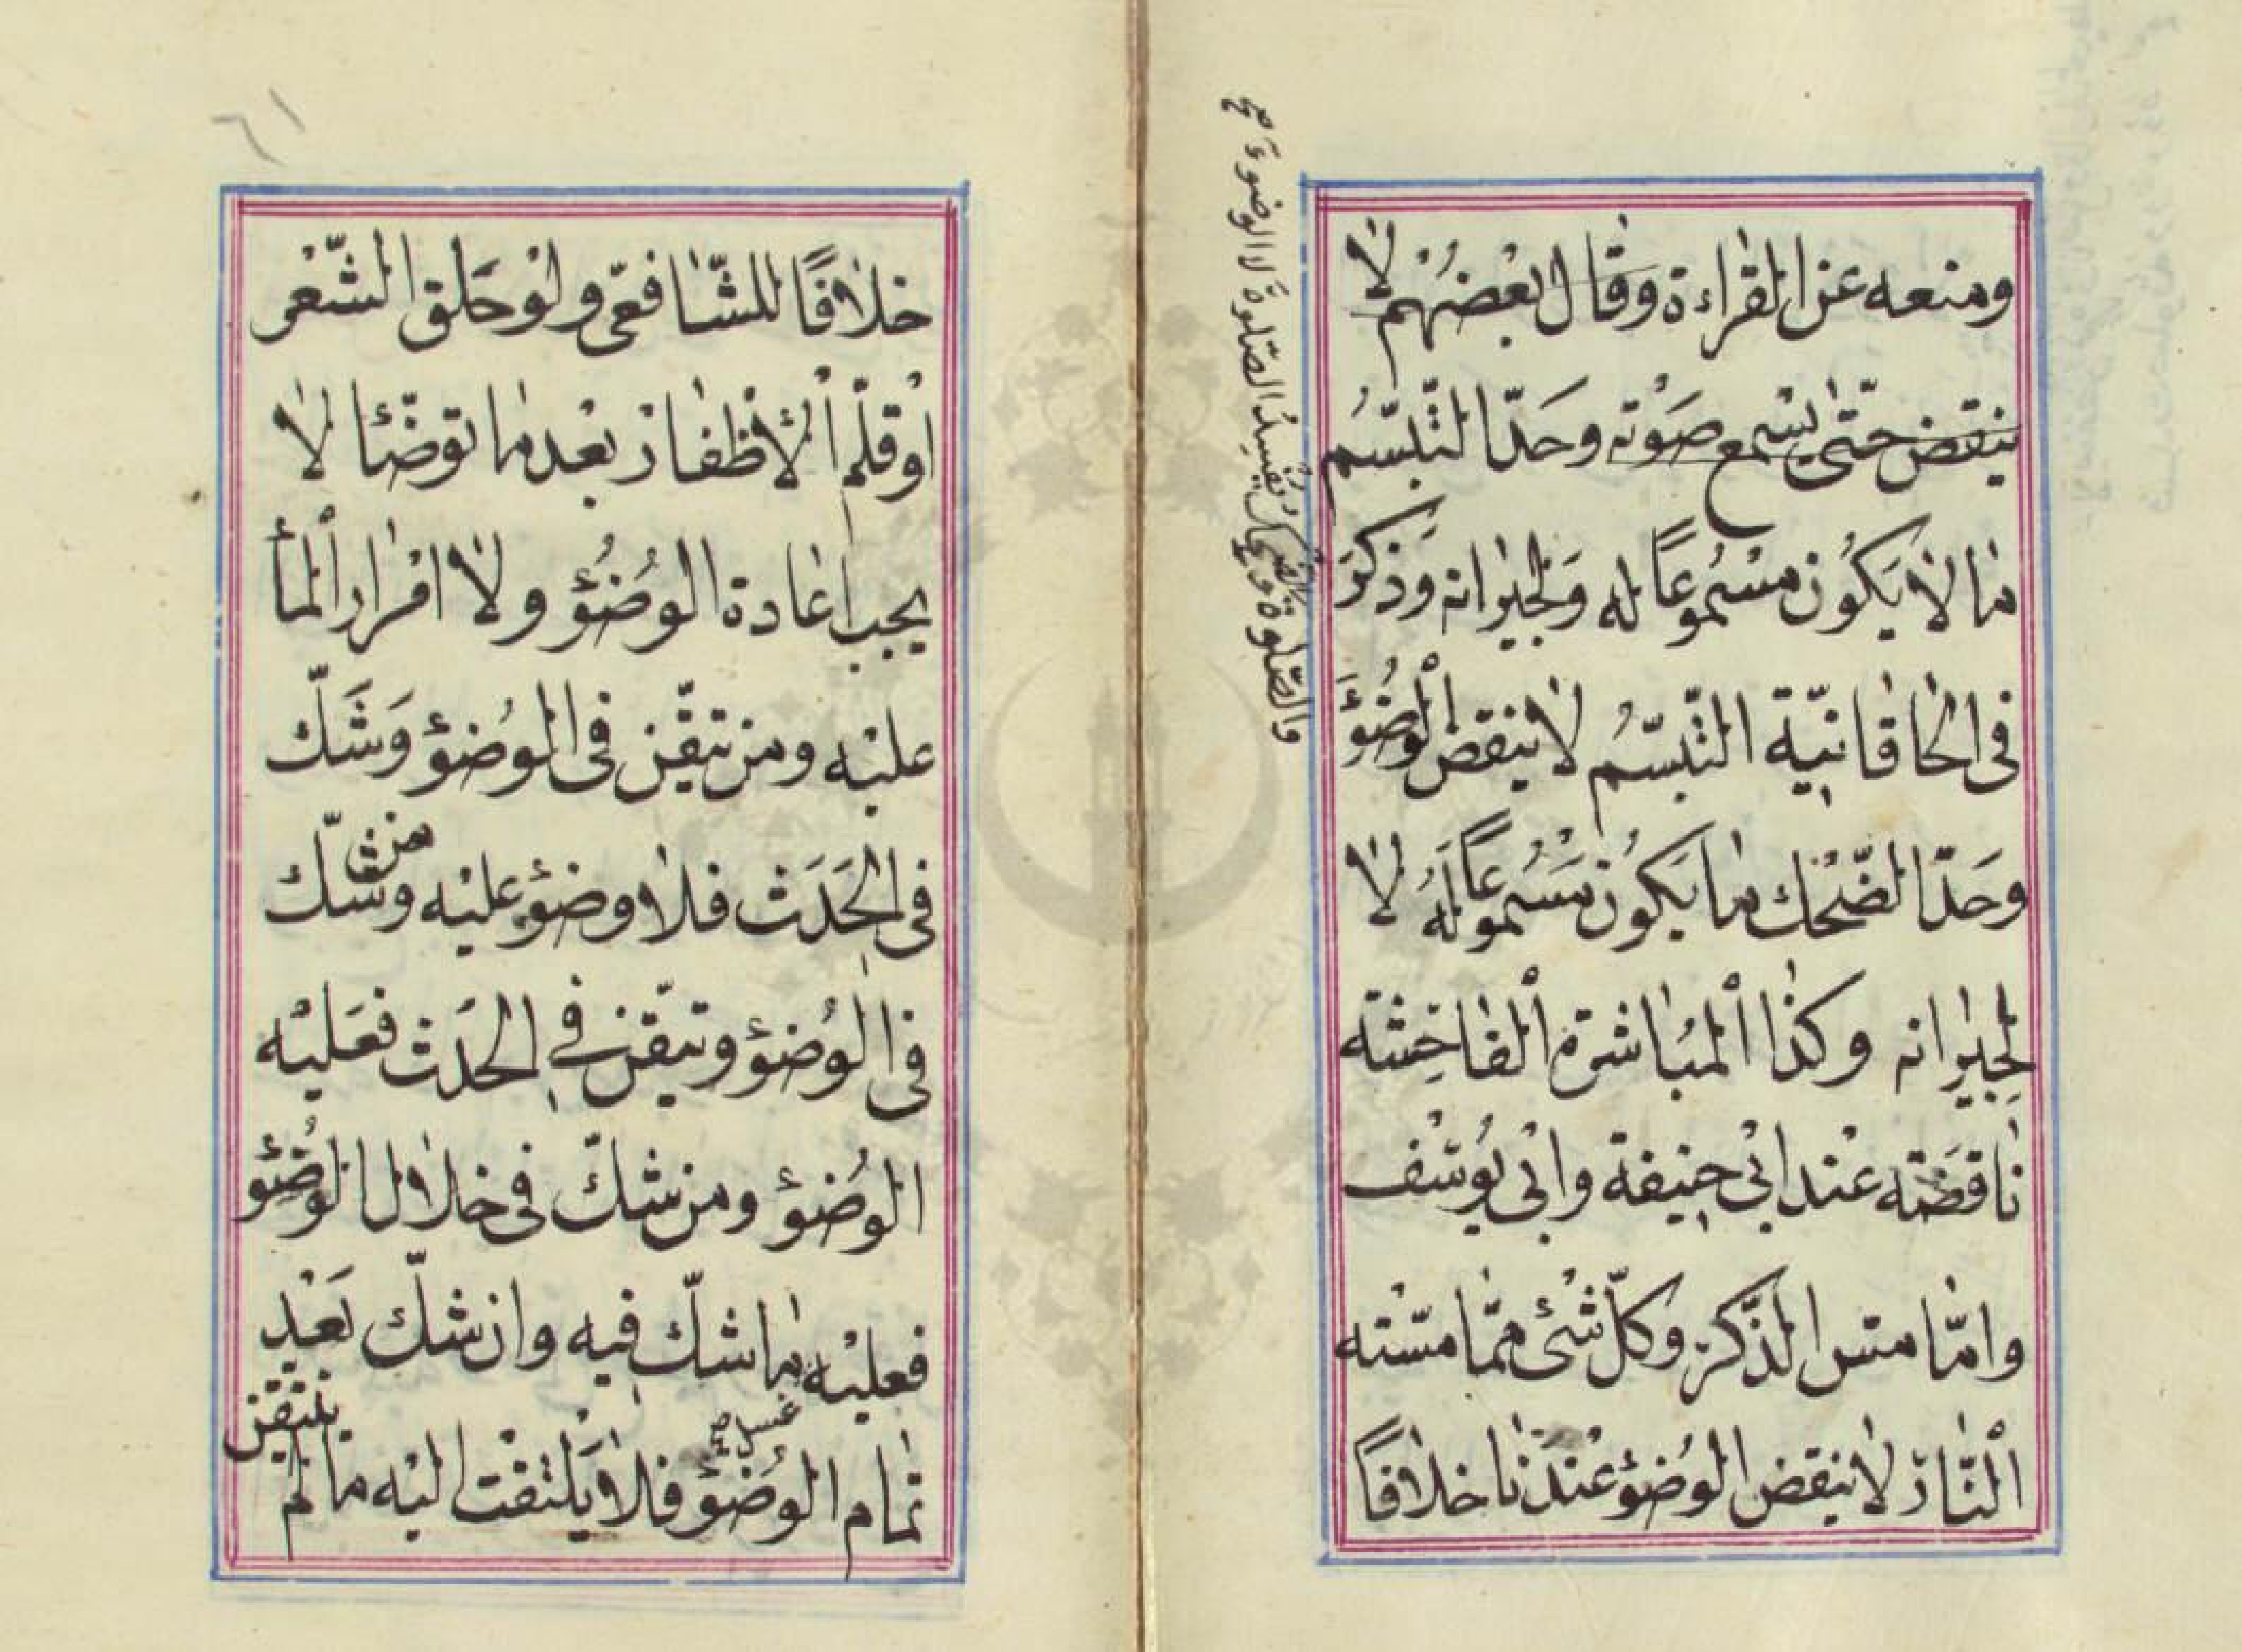 ومنعه عن القراءة وقال بعضهُم لا
ينقض حتّى يسْمع صَوْته وحَدّ التّبسّمُ
ما لا يَكُون مسْمُوعًا له وَلجيرانه وَذكَرَ
فى الخاقانيّة التّبسّمُ لا ينقض الْوُضُؤَ
وحَدّ الضّحْك ما يَكُون مَسْمُوعًا لَهُ لا
لِجيرانه وكذا الْمُبَاشرة الْفاحِشة
ناقضَته عنْد ابى حنيفة وابى يُوسْف
وامّا مسّ الذّكر وكلّ شىْء ممّا مسّته
الْنّار لا ينقض الوُضؤ عنْدَنا خلافًا
والصّلوة والضّحك يُفْسِدُ الصّلوةَ لا الوضوءَ صح
٦١
خلافًا للشّافعىّ ولوْ حَلق الشّعْر
اوْ قلّم الْأظفار بعْد ما توضّأ لا
يجب اعادة الوُضُؤ ولا امْرار الْمأ
عليْه ومن تيقّن فى الوُضؤ وَشَكّ
فى الحَدَث فلا وضؤ عليْه ومن شكّ
فى الوُضؤ وتيقّن فى الحدَث فعَليْه
الوُضؤ ومن شكّ فى خلال الوُضُؤ
فعليْه ما شكّ فيه وان شكّ بَعْد
تمام الوُضؤ فلا يَلْتفْت اليْه ما لم يتيقّن
غسل صح